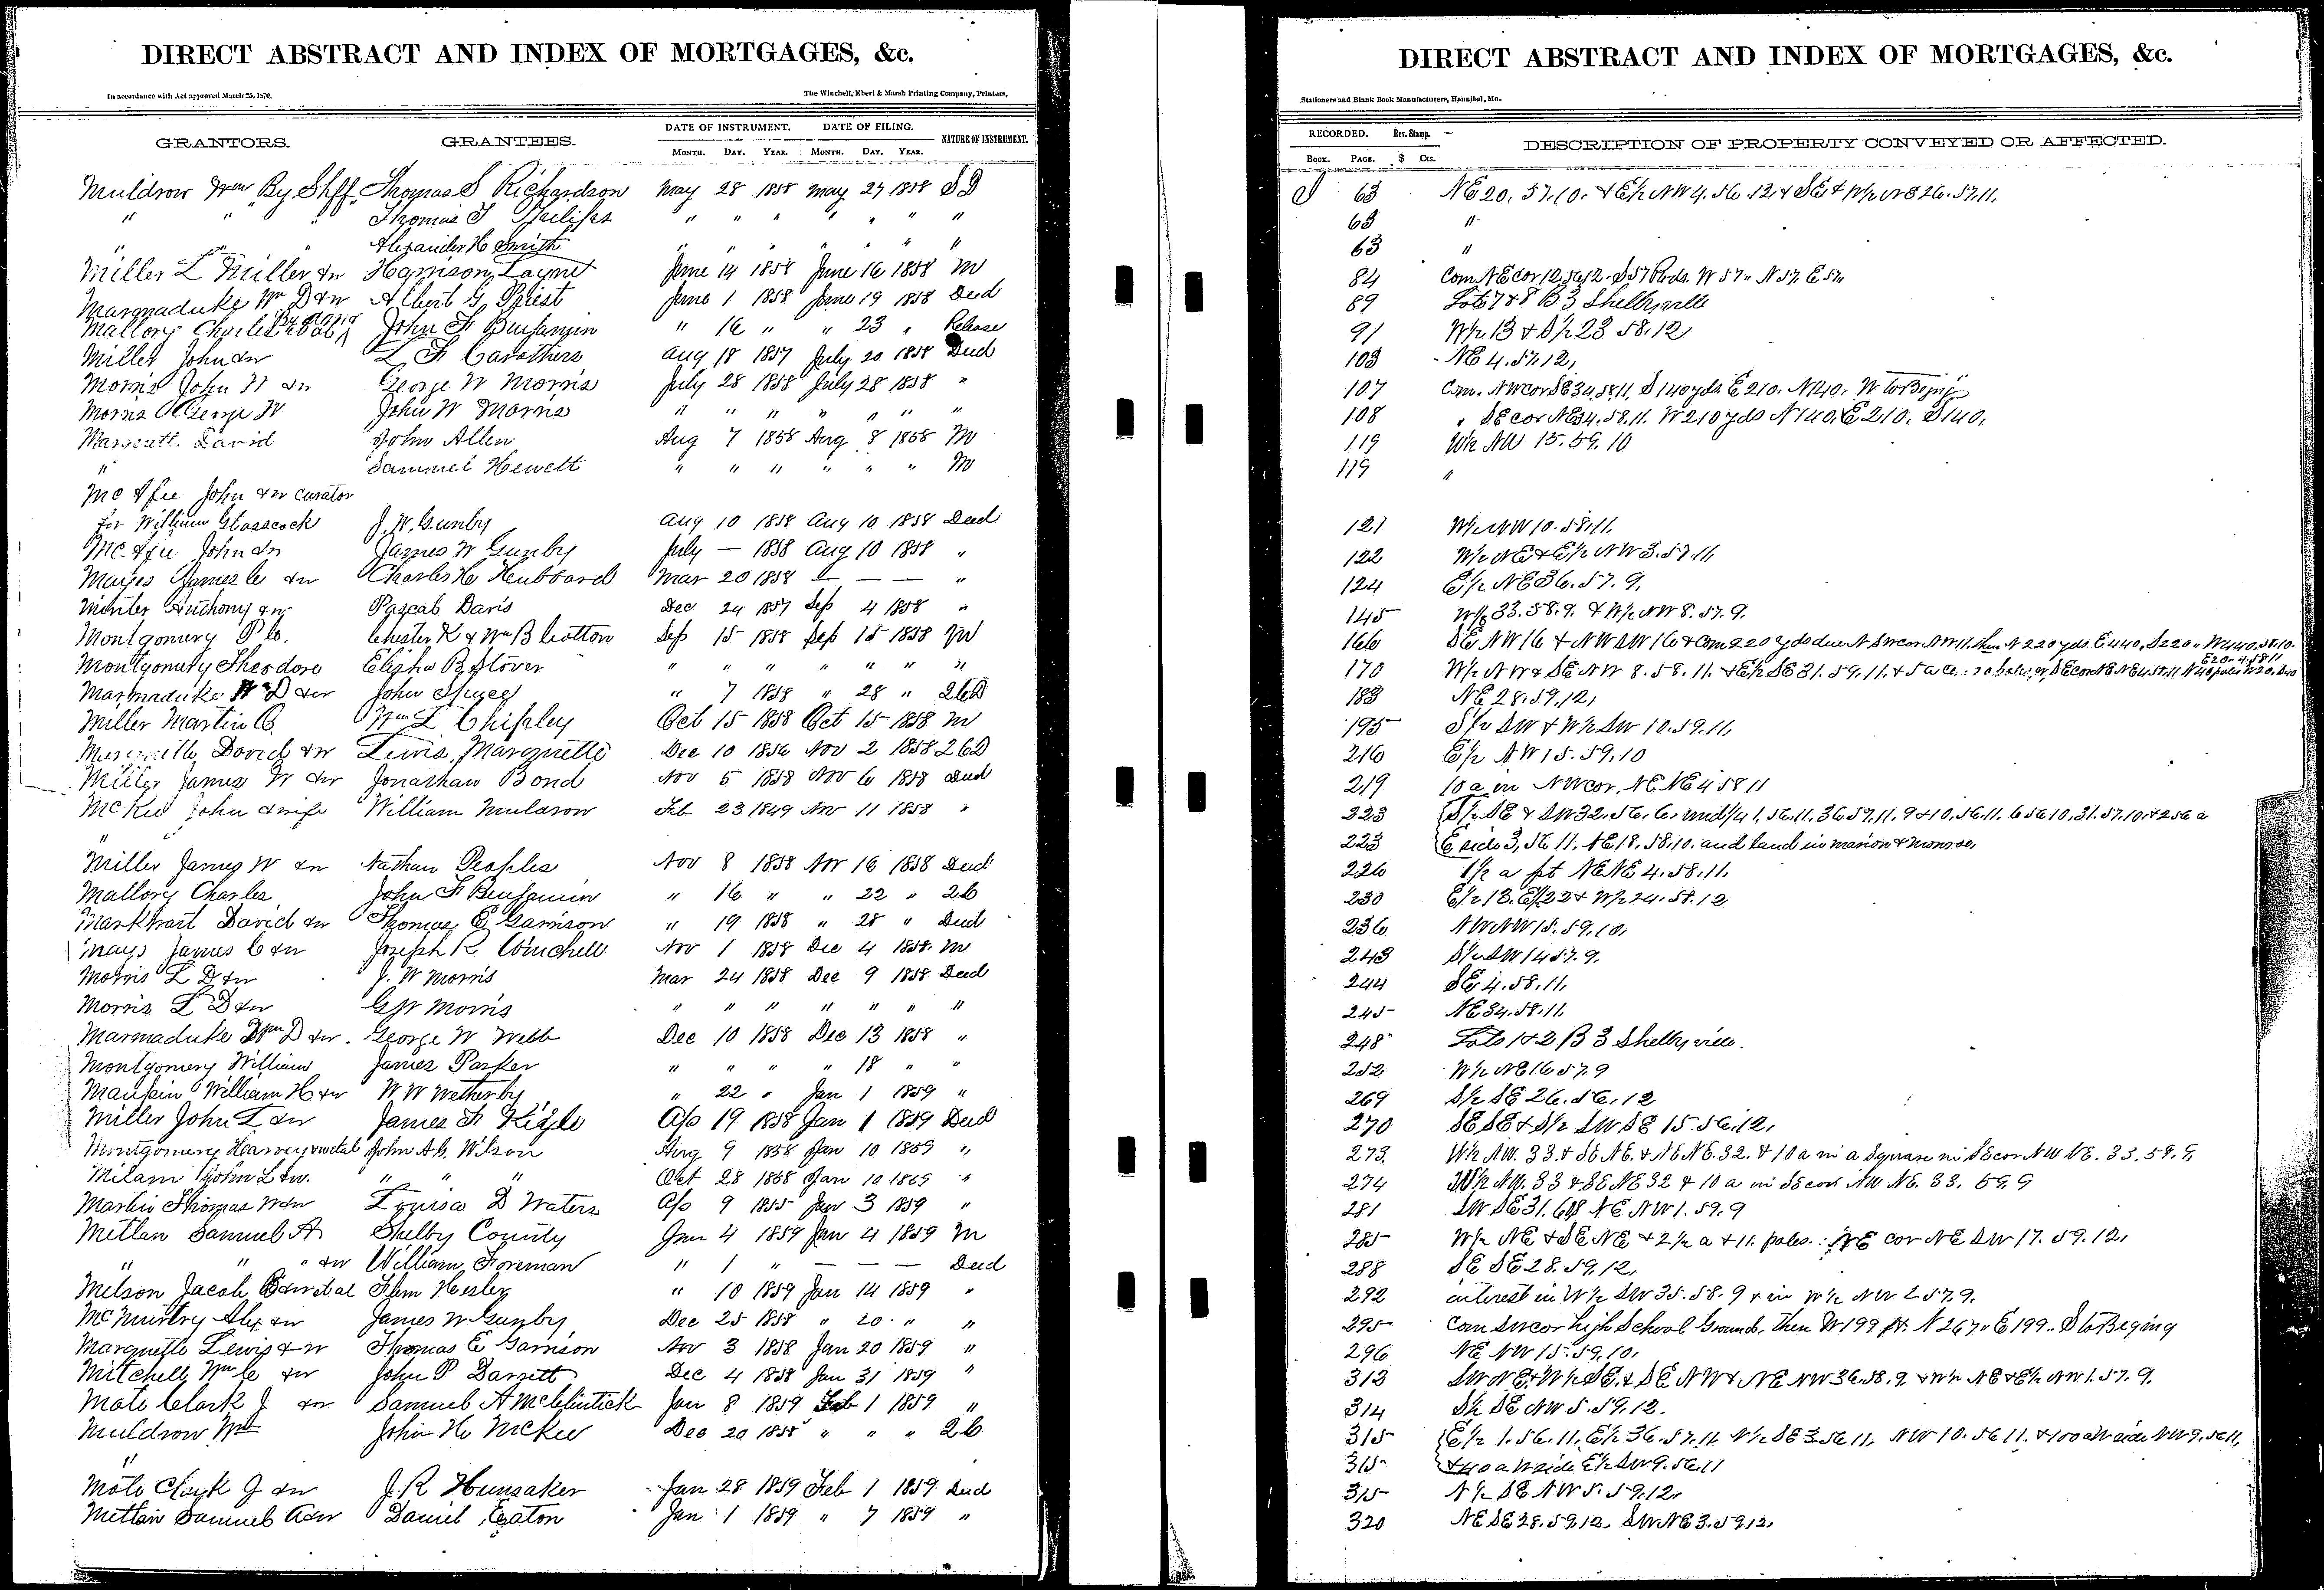 DIRECT ABSTRACT AND INDEX OF MORTGAGES, &c.
In accordance with Act approved March 25, 1870.
The Winchell, Ebert & Marsh Printing Company, Printers,
GRANTORS. GRANTEES. DATE OF INSTRUMENT. DATE OF FILING. NATURE OF INSTRUMENT.
MONTH. DAY. YEAR. MONTH. DAY. YEAR.
Muldrow Wm By Shff Thomas S Richardson May 28 1858 May 27 1858 S D
" " " Thomas J " " " " " " "
" " " Alexander H Smith " " " " " " "
Miller L Miller & w Harrison Layne June 14 1858 June 16 1858 M
Marmaduke Wm D & w Albert G Priest June 1 1858 June 19 1858 Deed
Mallory Charles John F Benjamin " 16 " " 23 " Release
Miller John & w L F Carothers Aug 18 1857 July 20 1858 Deed
Morris John W & w George W Morris July 28 1858 July 28 1858 "
Morris George W John W Morris " " " " " " "
David John Allen Aug 7 1858 Aug 8 1858 M
" Samuel Hewett " " " " " " M
McAfee John & w curator
for William Glasscock J. W. Gunby Aug 10 1858 Aug 10 1858 Deed
McAfee John & w James W Gunby July — 1858 Aug 10 1858 "
Mayes James C & w Charles H Hubbard Mar 20 1858 — — — "
Minter Anthony & w Pascal Davis Dec 24 1857 Sep 4 1858 "
Montgomery P C. Chester K & Wm B Cotton Sep 15 1858 Sep 15 1858 M
Montgomery Theodore Elisha B Stover " " " " " " "
Marmaduke W D & w John " 7 1858 " 28 " 2CD
Miller Martin C. Wm L Chipley Oct 15 1858 Oct 15 1858 M
Marquette David & w Lewis Marquette Dec 10 1856 Nov 2 1858 2CD
Miller James W & w Jonathan Bond Nov 5 1858 Nov 6 1858 Deed
McKee John & wife William Muldrow Feb 23 1849 Nov 11 1858 "
"
Miller James W & w Nathan Peoples Nov 8 1858 Nov 16 1858 Deed
Mallory Charles John F Benjamin " 16 " " 22 " 2C
Markwait David & w Thomas E Garrison " 19 1858 " 28 " Deed
Mays James C & w Joseph R Winchell Nov 1 1858 Dec 4 1858 M
Morris L D & w J. W Morris Mar 24 1858 Dec 9 1858 Deed
Morris L D & w G W Morris " " " " " " "
Marmaduke Wm D & w George W Webb Dec 10 1858 Dec 13 1858 "
Montgomery William James Parker " " " " 18 " "
Maupin William H & w W W Wetherby " 22 " Jan 1 1859 "
Miller John L & w James F Ap 19 1858 Jan 1 1859 Deed
Montgomery Harvey & w et al John A G. Wilson Aug 9 1858 Jan 10 1859 "
Milam John L & w. " " " Oct 28 1858 Jan 10 1859 "
Martin Thomas W & w Louisa D Waters Ap 9 1855 Jan 3 1859 "
Mitlan Samuel A Shelby County Jan 4 1859 Jan 4 1859 M
" " " & w William Foreman " 1 " — — — Deed
Milson Jacob B & w et al Flem Hesler " 10 1859 Jan 14 1859 "
McMurtry Alex & w James W Gunby Dec 25 1858 " 20 " "
Marquette Lewis & w Thomas E Garrison Nov 3 1858 Jan 20 1859 "
Mitchell Wm C & w John P Darnett Dec 4 1858 Jan 31 1859 "
Moto Clark J & w Samuel A McClintick Jan 8 1859 Feb 1 1859 "
Muldrow Wm John H McKee Dec 20 1858 " " " 2C
"
Moto Clark J & w J. R Hunsaker Jan 28 1859 Feb 1 1859 Deed
Mitlan Samuel A & w Daniel Eaton Jan 1 1859 " 7 1859 "
DIRECT ABSTRACT AND INDEX OF MORTGAGES, &c.
Stationers and Blank Book Manufacturers, Hannibal, Mo.
RECORDED. Rev. Stamp. DESCRIPTION OF PROPERTY CONVEYED OR AFFECTED.
BOOK. PAGE. $ Cts.
63 NE 20. 57. 10. & E½ NW 4. 56. 12 & SE & W½ NE 26. 57. 11.
63 "
63 "
84 Com NE cor 12, 56, 12. S 57 Rods. W 57 " N 57, E 57,
89 Lots 7 & 8 B 3 Shelbyville
91 W½ 13 & S½ 23 58. 12,
103 NE 4. 57. 12,
107 Com. NW cor SE 34, 58. 11, S 140 yds E 210. N 140. W to Begin
108 " SE cor NE 34. 58. 11. W 210 yds N 140, E 210. S 140,
119 W½ NW 15. 59. 10
119 "
121 W½ NW 10. 58. 11.
122 W½ NE & E½ NW 3. 57. 11,
124 E½ NE 36. 57. 9,
145 W½ 33. 58. 9. & W½ NW 8. 57. 9.
166 SE NW 16 & NW SW 16 & Com 220 yds due N SW cor NW 11, then N 220 yds E 440, S 220 " W 440, 58. 10.
170 W½ NW & SE NW 8. 58. 11. & E½ SE 31. 59. 11. & 5 a
183 NE 28. 59. 12,
195 S½ SW & W½ SW 10. 59. 11,
216 E½ NW 15. 59. 10
219 10 a in NW cor, NE NE 4 58 11
223 S½ SE & SW 32. 56. 6.
223 E side 3, 56 11, NE 18. 58. 10. and land in Marion & Monroe,
226 1½ a pt NE NE 4. 58. 11.
230 E½ 13. E½ 22 & W½ 24. 58. 12
236 NW NW 15. 59. 10,
243 S½ SW 14 57. 9.
244 SE 4. 58. 11,
245 NE 34. 58. 11.
248 Lots 1 & 2 B 3 Shelbyville.
252 W½ NE 16 57. 9
269 S½ SE 26. 56. 12
270 SE SE & S½ SW SE 15. 56. 12,
273 W½ NW. 33. & SE NE. & NE NE. 32. & 10 a in a Square in SE cor NW NE. 33. 59. 9,
274 W½ NW. 33 & SE NE 32 & 10 a in SE cor NW NE. 33. 59. 9
281 SW SE 31. 60. 8 NE NW 1. 59. 9
285 W½ NE & SE NE & 2½ a & 11. poles. NE cor NE SW 17. 59. 12,
288 SE SE 28. 59. 12,
292 interest in W½ SW 35. 58. 9 & in W½ NW 2 57. 9.
295 Com SW cor high School Ground, then W 199 ft. N 267 " E 199 " S to Beging
296 NE NW 15. 59. 10,
313 SW NE & W½ SE. & SE NW & NE NW 36. 58. 9. & W½ NE & E½ NW 1. 57. 9.
314 S½ SE NW 5. 59. 12.
315 E½ 1. 56. 11, E½ 36. 57. 11. N½ SE 3. 56 11, NW 10. 56 11. & 100 a W side NW 9. 56 11,
315 & 40 a W side E½ SW 9. 56. 11
315 N½ SE NW 5. 59. 12,
320 NE SE 28. 59. 12. SW NE 3. 59 12,